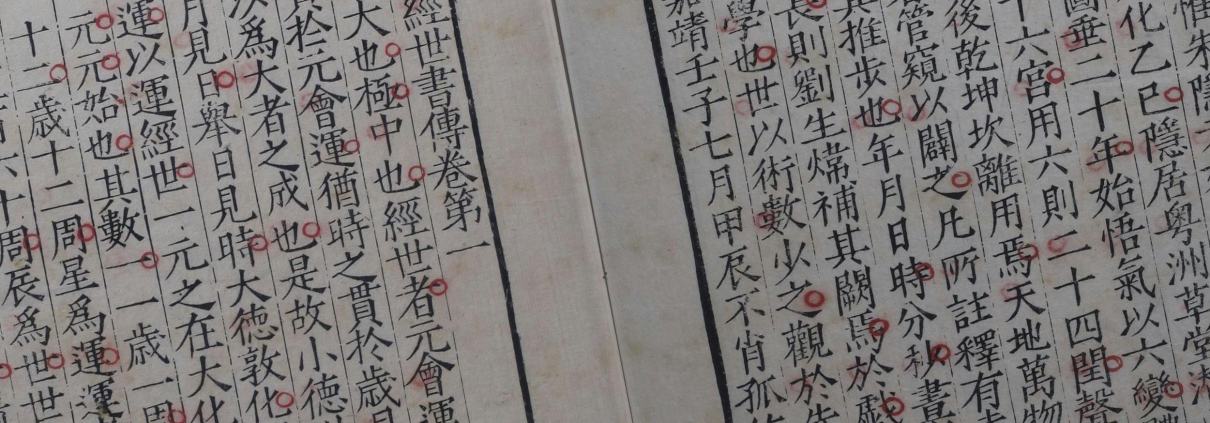 惟朱隱
化乙巳隱居粤洲草堂
圖垂二十年始悟氣以六變
十六宮用六則二十四閏聲
後乾坤坎離用焉天地萬物
管窺以闢之凡所註釋有
其推步也年月日時分秋晝
長則劉生煒補其闕焉於戲
學也世以術數少之觀於
嘉靖壬子七月甲辰不肖孤
經世書傳卷第一
大也極中也經世者元會運
於元會運猶時之貫於歲月
為大者之成也是故小德
月見日舉日見時大德敦化
運以運經世一元之在大化
元元始也其數一一歲一周
十二歲十二周星為運運
六十周辰為世世